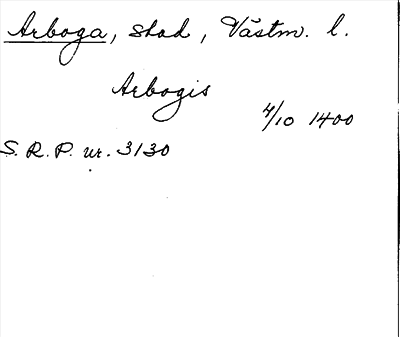 Arboga, stad, Västm. l.
Arbogis
4/10 1400
S. R. P. nr. 3130